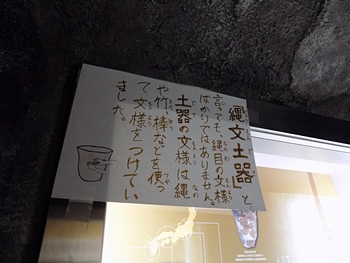 『縄文土器』と
言っても、縄目の文様
ばかりではありません。
土器の文様は縄
や竹、棒などを使っ
て文様をつけてい
ました。